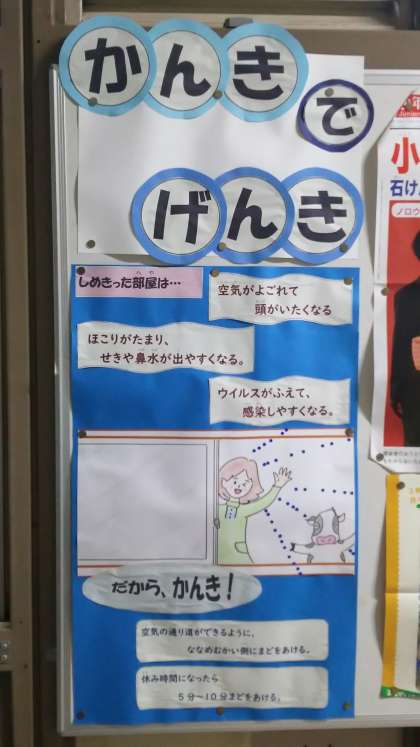 かんき
で
げんき
しめきった部屋は…
空気がよごれて
頭がいたくなる
ほこりがたまり、
せきや鼻水が出やすくなる。
ウイルスがふえて、
感染しやすくなる。
だから、かんき！
空気の通り道ができるように、
ななめむかい側にまどをあける。
休み時間になったら
5分～10分まどをあける。
小
石け
ノロウ